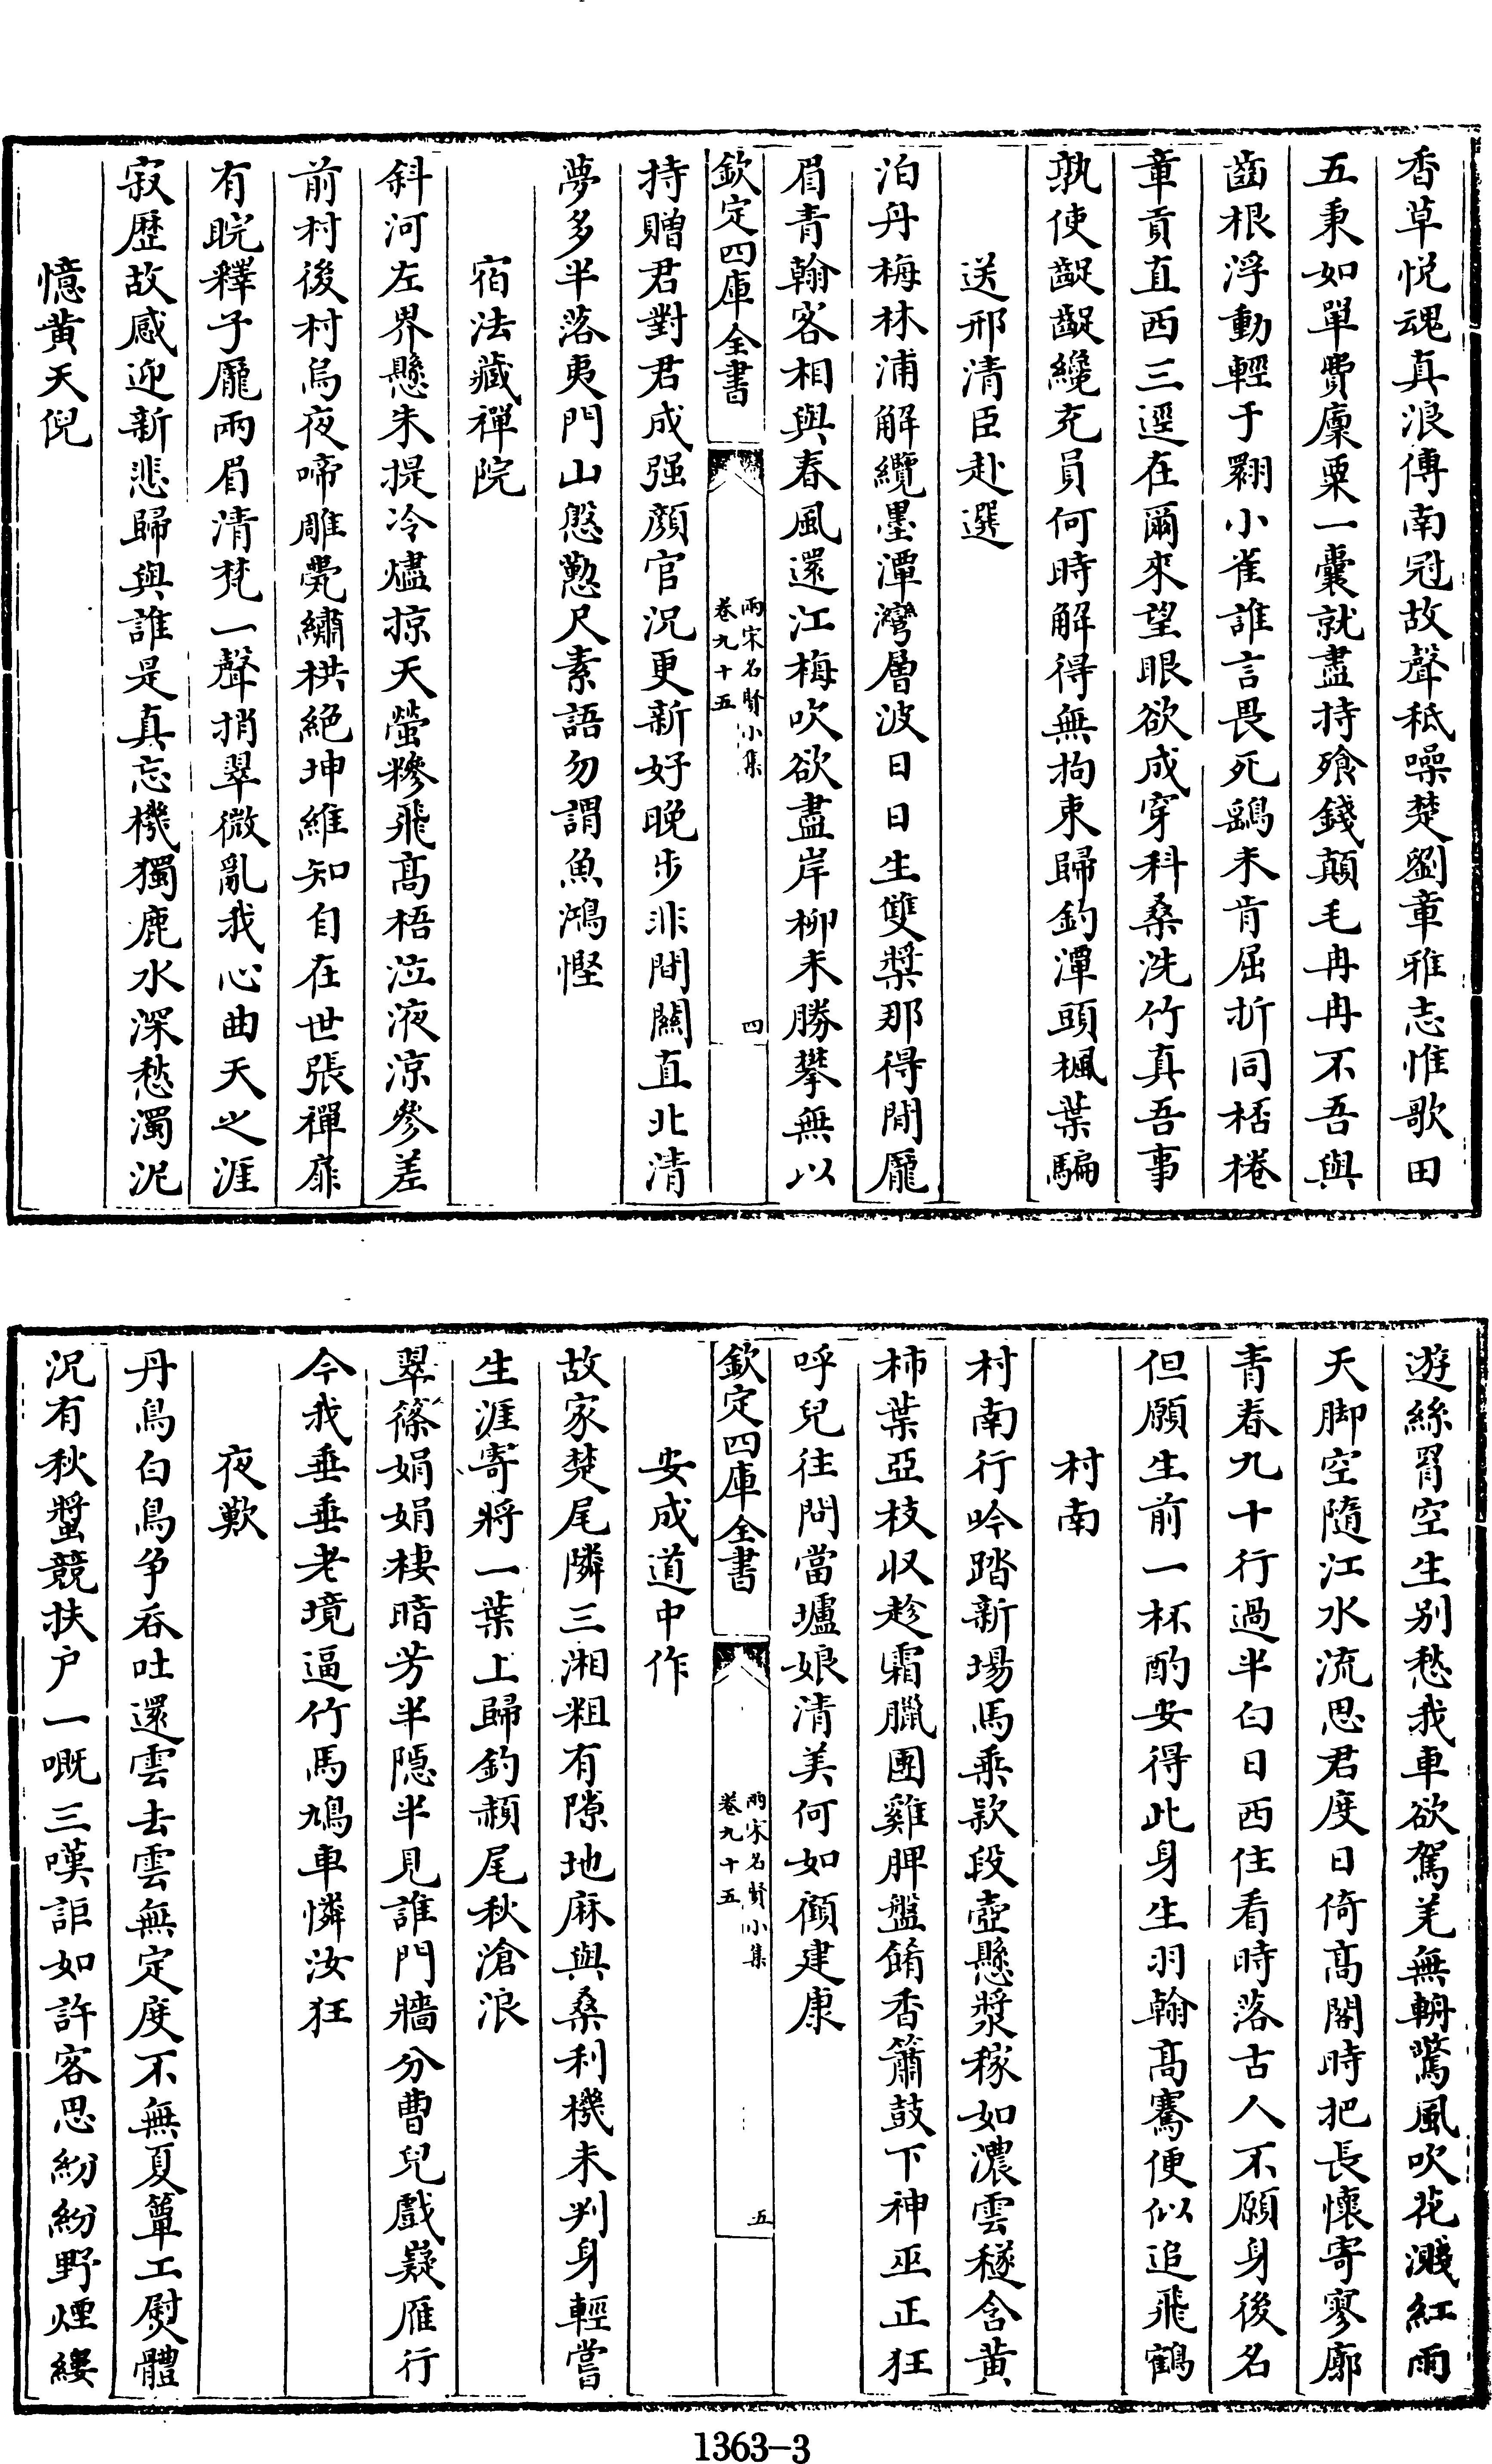 香草悦魂真浪傳南冠故聲秪噪楚劉章雅志惟歌田
五秉如單費廩粟一囊就盡持飱錢顛毛冉冉不吾與
齒根浮動輕于翷小雀誰言畏死鷂未肯屈折同桮棬
章貢直西三逕在爾來望眼欲成穿科桑洗竹真吾事
孰使齪齪纔充員何時解得無拘束歸釣潭頭楓葉騙
送邢清臣赴選
泊丹梅林浦解纜墨潭灣層波日日生雙槳那得閒龎
眉青翰客相與春風還江梅吹欲盡岸柳未勝攀無以
欽定四庫全書
兩宋名賢小集
卷九十五
四
持贈君對君成强顔官況更新好晚步非間關直北清
夢多半落夷門山慇懃尺素語勿謂魚鴻慳
宿法藏禪院
斜河左界懸朱提冷燼掠天螢糝飛髙梧泣液涼參差
前村後村烏夜啼雕甍繡栱絕坤維知自在世張禪扉
有晥釋子龎兩眉清梵一聲捎翠微亂我心曲天之涯
寂歴故感迎新悲歸與誰是真忘機獨鹿水深愁濁泥
憶黄天倪
遊絲罥空生别愁我車欲駕羌無輈驚風吹花濺紅雨
天脚空隨江水流思君度日倚髙閣時把長懷寄寥廓
青春九十行過半白日西住看時落古人不願身後名
但願生前一杯酌安得此身生羽翰髙騫便似追飛鶴
村南
村南行吟踏新場馬乘欵段壺懸漿稼如濃雲穟含黄
柿葉亞枝収趁霜臘團雞脾盤餚香簫鼓下神巫正狂
呼兒往問當壚娘清美何如顧建康
欽定四庫全書
兩宋名賢小集
卷九十五
五
安成道中作
故家楚尾隣三湘粗有隙地麻與桑利機未判身輕嘗
生涯寄將一葉上歸釣赬尾秋滄浪
翠篠娟娟棲暗芳半隠半見誰門牆分曹兒戲嶷雁行
今我垂垂老境逼竹馬鳩車憐汝狂
夜歎
丹鳥白鳥争吞吐還雲去雲無定度不無夏簟工熨體
況有秋螿競扶户一嘅三嘆詎如許客思紛紛野煙縷
1363-3